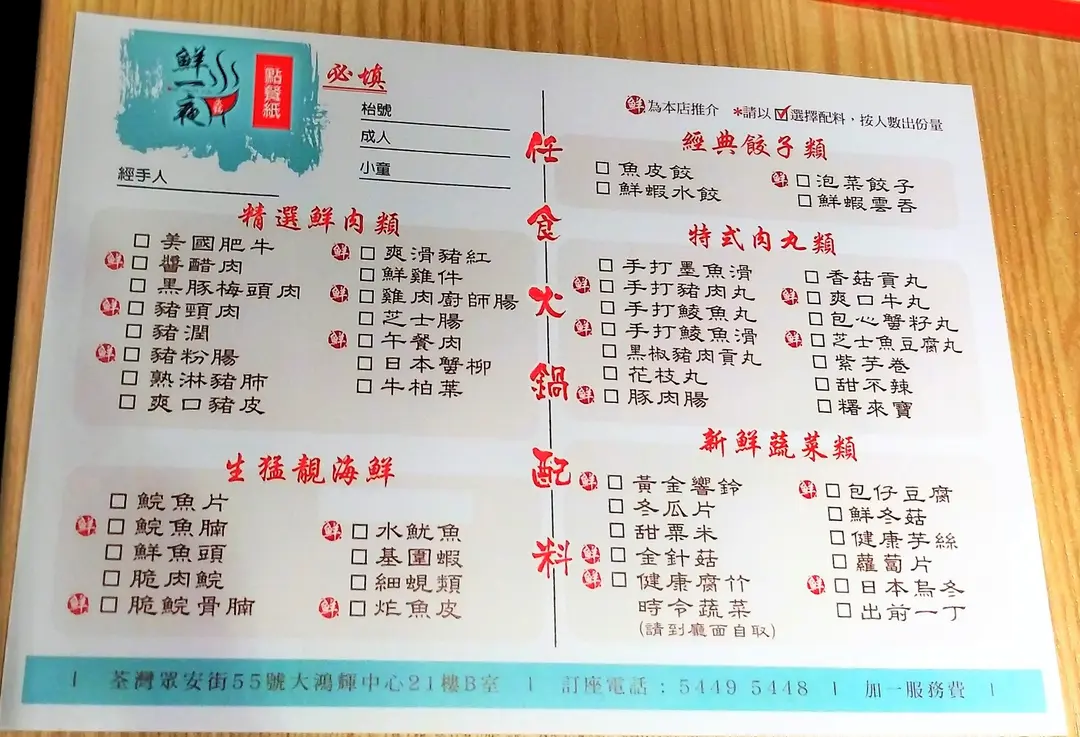 鮮一夜
點餐紙
必填
枱號
成人
小童
經手人
鮮為本店推介 *請以☑選擇配料，按人數出份量
任食火鍋配料
精選鮮肉類
☐ 美國肥牛
鮮 ☐ 醬醋肉
☐ 黑豚梅頭肉
鮮 ☐ 豬頸肉
☐ 豬潤
鮮 ☐ 豬粉腸
☐ 熟淋豬肺
☐ 爽口豬皮
鮮 ☐ 爽滑豬紅
☐ 鮮雞件
鮮 ☐ 雞肉廚師腸
☐ 芝士腸
鮮 ☐ 午餐肉
☐ 日本蟹柳
☐ 牛柏葉
生猛靚海鮮
☐ 鯇魚片
鮮 ☐ 鯇魚腩
☐ 鮮魚頭
☐ 脆肉鯇
鮮 ☐ 脆鯇骨腩
鮮 ☐ 水魷魚
☐ 基圍蝦
☐ 細蜆類
鮮 ☐ 炸魚皮
經典餃子類
☐ 魚皮餃
☐ 鮮蝦水餃
鮮 ☐ 泡菜餃子
☐ 鮮蝦雲吞
特式肉丸類
☐ 手打墨魚滑
鮮 ☐ 手打豬肉丸
☐ 手打鯪魚丸
鮮 ☐ 手打鯪魚滑
☐ 黑椒豬肉貢丸
☐ 花枝丸
鮮 ☐ 豚肉腸
☐ 香菇貢丸
鮮 ☐ 爽口牛丸
☐ 包心蟹籽丸
鮮 ☐ 芝士魚豆腐丸
☐ 紫芋卷
☐ 甜不辣
☐ 糬來寶
新鮮蔬菜類
鮮 ☐ 黃金響鈴
☐ 冬瓜片
☐ 甜粟米
鮮 ☐ 金針菇
鮮 ☐ 健康腐竹
時令蔬菜
(請到廳面自取)
鮮 ☐ 包仔豆腐
☐ 鮮冬菇
☐ 健康芋絲
☐ 蘿蔔片
鮮 ☐ 日本烏冬
☐ 出前一丁
| 荃灣眾安街55號大鴻輝中心21樓B室 | 訂座電話：5449 5448 | 加一服務費 |